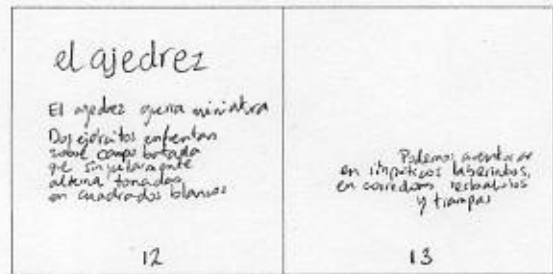 el ajedrez
El ajedrez guerra miniatura
Dos ejércitos enfrentan
sobre campo
que singularmente
alterna
en cuadrados blancos
12
Podemos aventurar
en laberintos,
en corredores,
y trampas
13